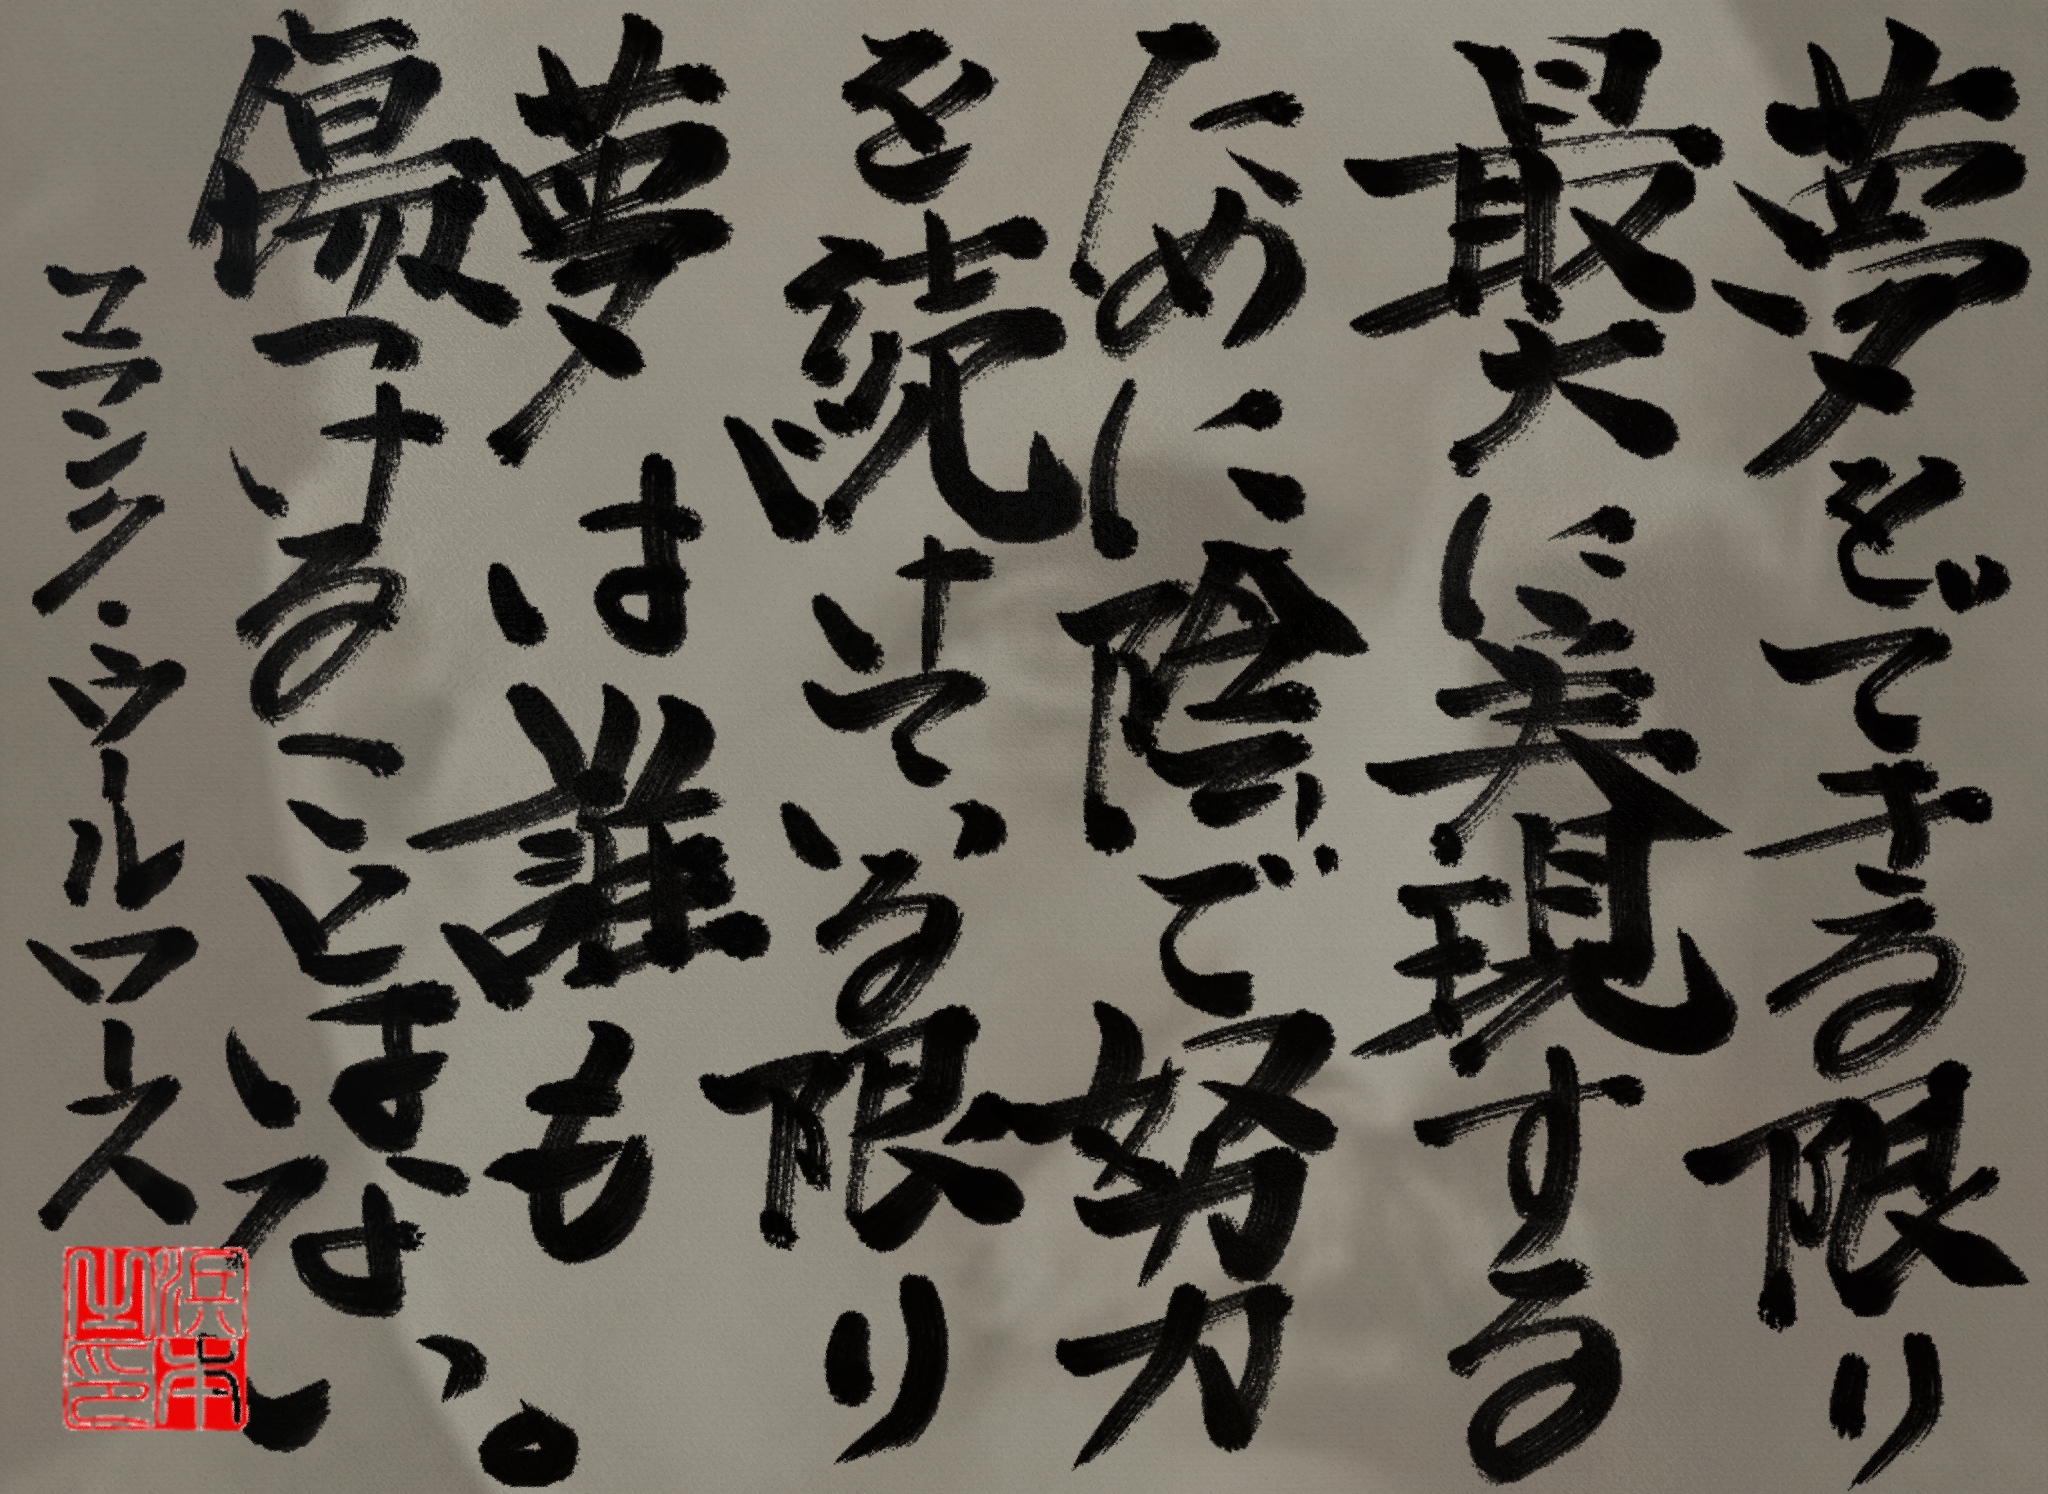 夢をできる限り
最大に実現する
ために陰で努力
を続けている限り
夢は誰も
傷つけることはない。
フランク・ウールワース
浜本之印